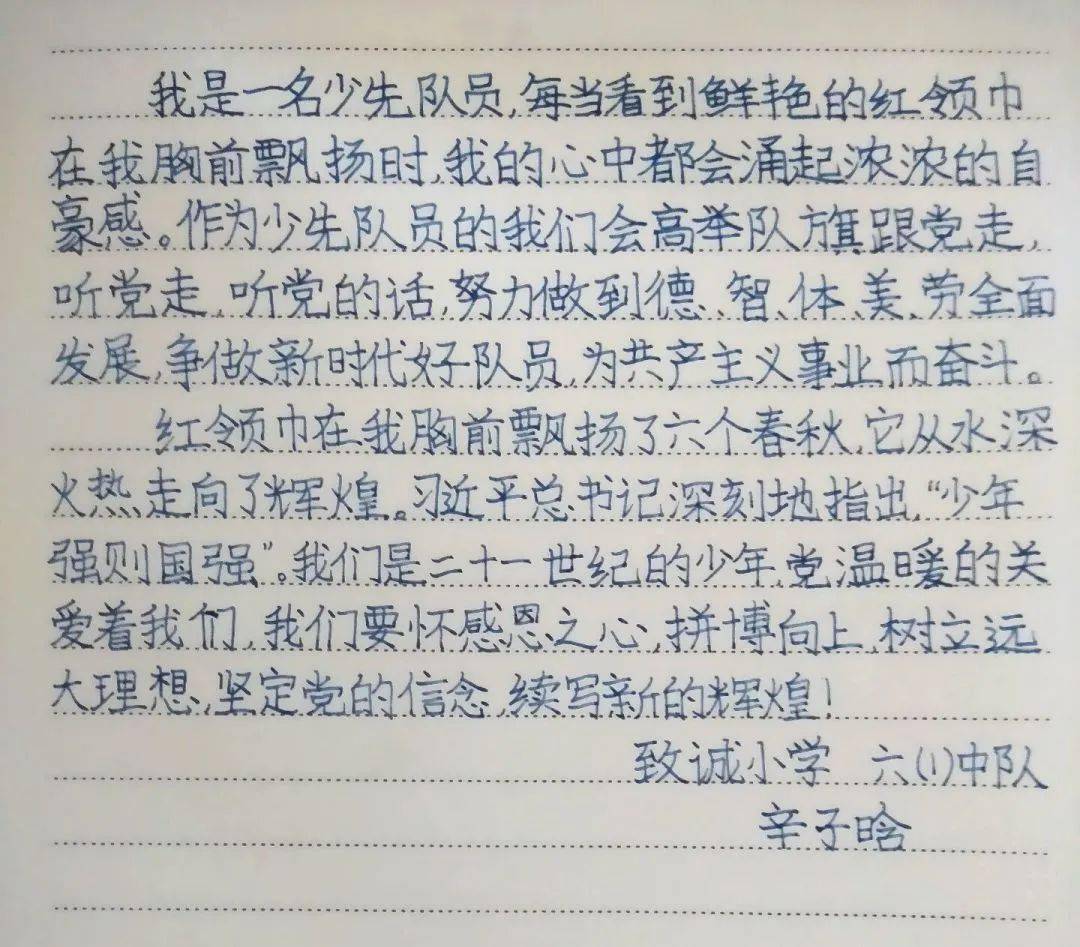 我是一名少先队员,每当看到鲜艳的红领巾
在我胸前飘扬时,我的心中都会涌起浓浓的自
豪感。作为少先队员的我们会高举队旗跟党走,
听党走,听党的话,努力做到德、智、体、美、劳全面
发展,争做新时代好队员,为共产主义事业而奋斗。
红领巾在我胸前飘扬了六个春秋,它从水深
火热走向了辉煌。习近平总书记深刻地指出,“少年
强则国强”。我们是二十一世纪的少年,党温暖的关
爱着我们,我们要怀感恩之心,拼博向上,树立远
大理想,坚定党的信念,续写新的辉煌!
致诚小学 六(1)中队
辛子晗